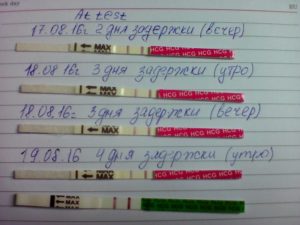 At test
17.08.16г 2 дня задержки (вечер)
MAX HCG HCG HCG HCG HCG
18.08.16г 3 дня задержки (утро)
MAX HCG HCG HCG HCG HCG
18.08.16г 3 дня задержки (вечер)
MAX HCG HCG HCG HCG HCG
19.08.16 4 дня задержки (утро)
MAX HCG HCG HCG HCG HCG
MAX HCG HCG HCG HCG HCG